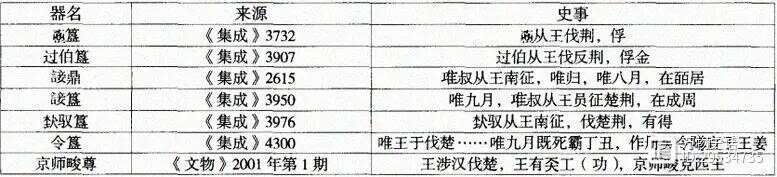 器名 来源 史事
簋 《集成》3732 从王伐荆，俘
过伯簋 《集成》3907 过伯从王伐反荆，俘金
鼎 《集成》2615 唯叔从王南征，唯归，唯八月，在居
簋 《集成》3950 唯九月，唯叔从王员征楚荆，在成周
驭簋 《集成》3976 驭从王南征，伐楚荆，有得
令簋 《集成》4300 唯王于伐楚……唯九月既死霸丁丑，作 王姜
京师畯尊 《文物》2001年第1期 王涉汉伐楚，王有工（功），京师畯克匹王